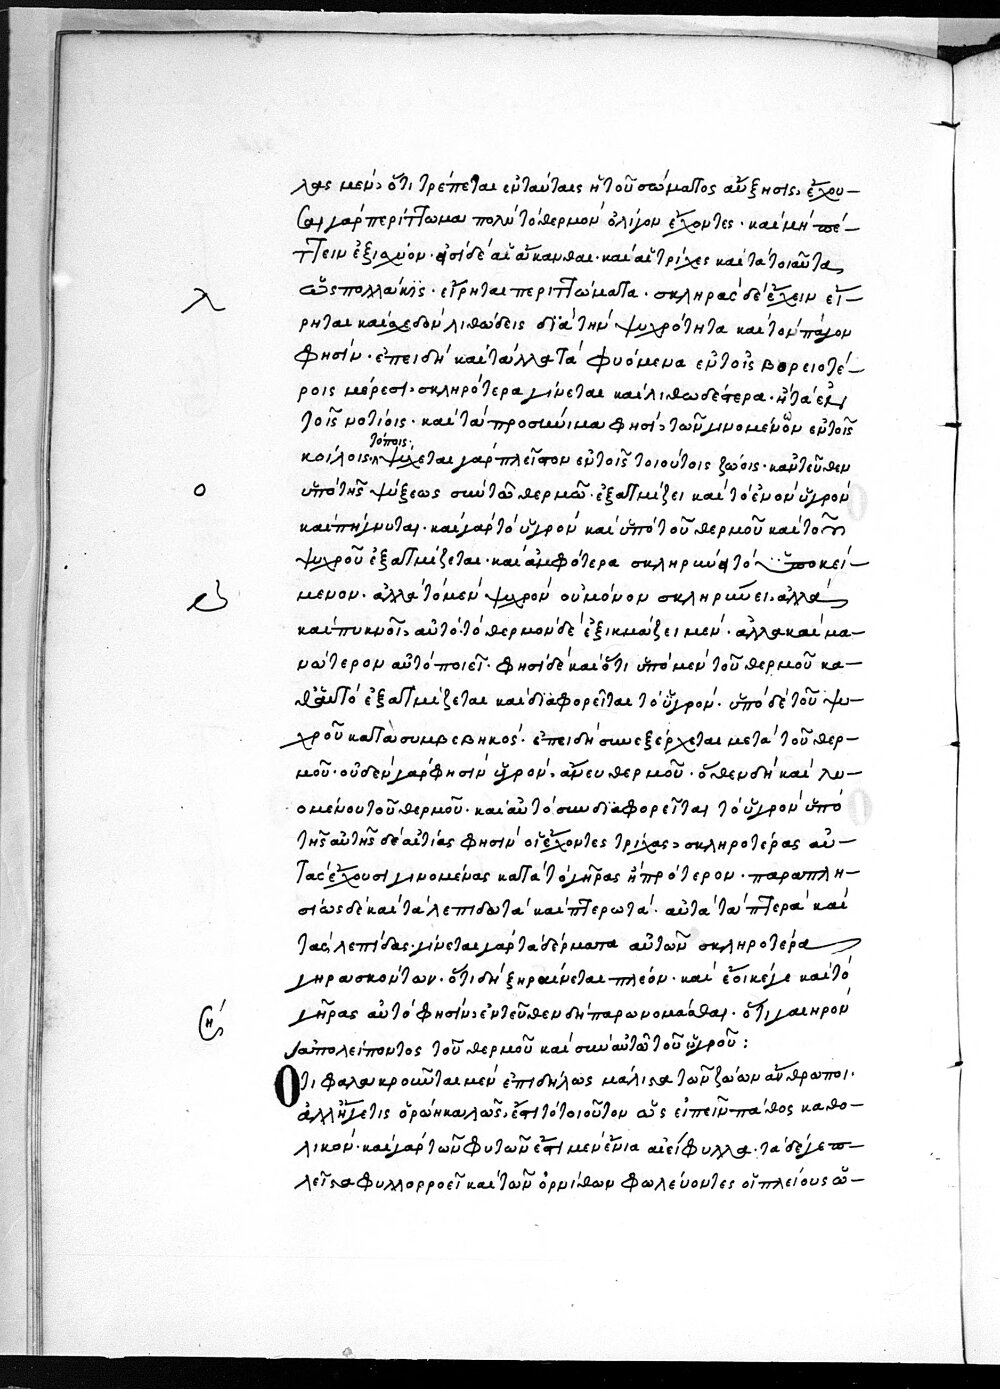 λας μὲν, ὅτι τρέπεται ἐνταύταις ἡ τοῦ σώματος αὔξησις, ἔχου-
σι γὰρ περίττωμα πολὺ τὸ θερμὸν ὀλίγον ἔχοντες· καὶ μὴ πέ-
πτειν ἐξισχύον· φησὶ δὲ αἱ ἄκανθαι· καὶ αἱ τρίχες καὶ τὰ τοιαῦτα
ὡς πολλάκις· εἴρηται περιττώματα· σκληρὰς δὲ ἔχειν εἴ-
λ
ρηται καὶ σχεδὸν λιθώδεις διὰ τὴν ψυχρότητα καὶ τὸν πάγον
φησίν· ἐπειδὴ καὶ τἄλλα τὰ φυόμενα ἐν τοῖς βορειοτέ-
ροις μέρεσι, σκληρότερα γίνεται καὶ λιθωδέστερα· ἢ τὰ ἐν
τοῖς νοτίοις· καὶ τὰ προσήνεμα φησὶ, τῶν γινομένων ἐν τοῖς
κοίλοις τόποις· ψύχεται γὰρ πλεῖστον ἐν τοῖς τοιούτοις ζώοις· κἀντεῦθεν
ο
ὑπὸ τῆς ψύξεως σὺν τῷ θερμῷ· ἐξατμίζει καὶ τὸ ἐνὸν ὑγρὸν
καὶ πήγνυται· καὶ γὰρ τὸ ὑγρὸν καὶ ὑπὸ τοῦ θερμοῦ καὶ τοῦ
ψυχροῦ ἐξατμίζεται· καὶ ἀμφότερα σκληρύνει τὸ ὑποκεί-
μενον· ἀλλὰ τὸ μὲν ψυχρὸν οὐ μόνον σκληρύνει, ἀλλὰ
καὶ πυκνοῖ, αὐτό· τὸ θερμὸν δὲ ἐξικμάζει μὲν· ἀλλὰ καὶ μα-
νώτερον αὐτὸ ποιεῖ· φησὶ δὲ καὶ ὅτι ὑπὸ μὲν τοῦ θερμοῦ κα-
θ' αὑτὸ ἐξατμίζεται καὶ διαφορεῖται τὸ ὑγρόν· ὑπὸ δὲ τοῦ ψυ-
χροῦ κατὰ συμβεβηκός· ἐπειδὴ συνεξέρχεται μετὰ τοῦ θερ-
μοῦ· οὐδὲν γὰρ φησὶν ὑγρὸν, ἄνευ θερμοῦ· ὅθεν δὴ καὶ λυ-
ομένου τοῦ θερμοῦ· καὶ αὐτὸ συνδιαφορεῖται τὸ ὑγρὸν ὑπὸ
τῆς αὐτῆς δὲ αἰτίας φησὶν οἱ ἔχοντες τρίχας, σκληροτέρας αὐ-
τὰς ἔχουσι γινομένας κατὰ τὸ γῆρας ἢ πρότερον· παραπλη-
σίως δὲ καὶ τὰ λεπιδωτὰ καὶ πτερωτά· αὐτὰ τὰ πτερὰ καὶ
τὰς λεπίδας· γίνεται γὰρ τὰ δέρματα αὐτῶν σκληρότερα
γηρασκόντων· ὅτι δὴ ξηραίνεται πλέον· καὶ ἔοικέ γε καὶ τὸ
γῆρας αὐτὸ φησὶν, ἐντεῦθεν δὴ παρωνομᾶσθαι· ὅτι γαιηρὸν
ἀπολείποντος τοῦ θερμοῦ καὶ σὺν αὐτῷ τοῦ ὑγροῦ:
Ὅτι φαλακροῦνται μὲν ἐπιδήλως μάλιστα τῶν ζώων ἄνθρωποι·
ἀλλ' εἴ γέ τις ὁρώη καλῶς, ἔστι τὸ τοιοῦτον ὡς εἰπεῖν πάθος καθο-
λικόν· καὶ γὰρ τῶν φυτῶν ἔστι μὲν ἔνια ἀείφυλλα· τὰ δέ γε π-
λεῖστα φυλλορροεῖ καὶ τῶν ὀρνίθων φωλεύοντες οἱ πλείους ὡ-